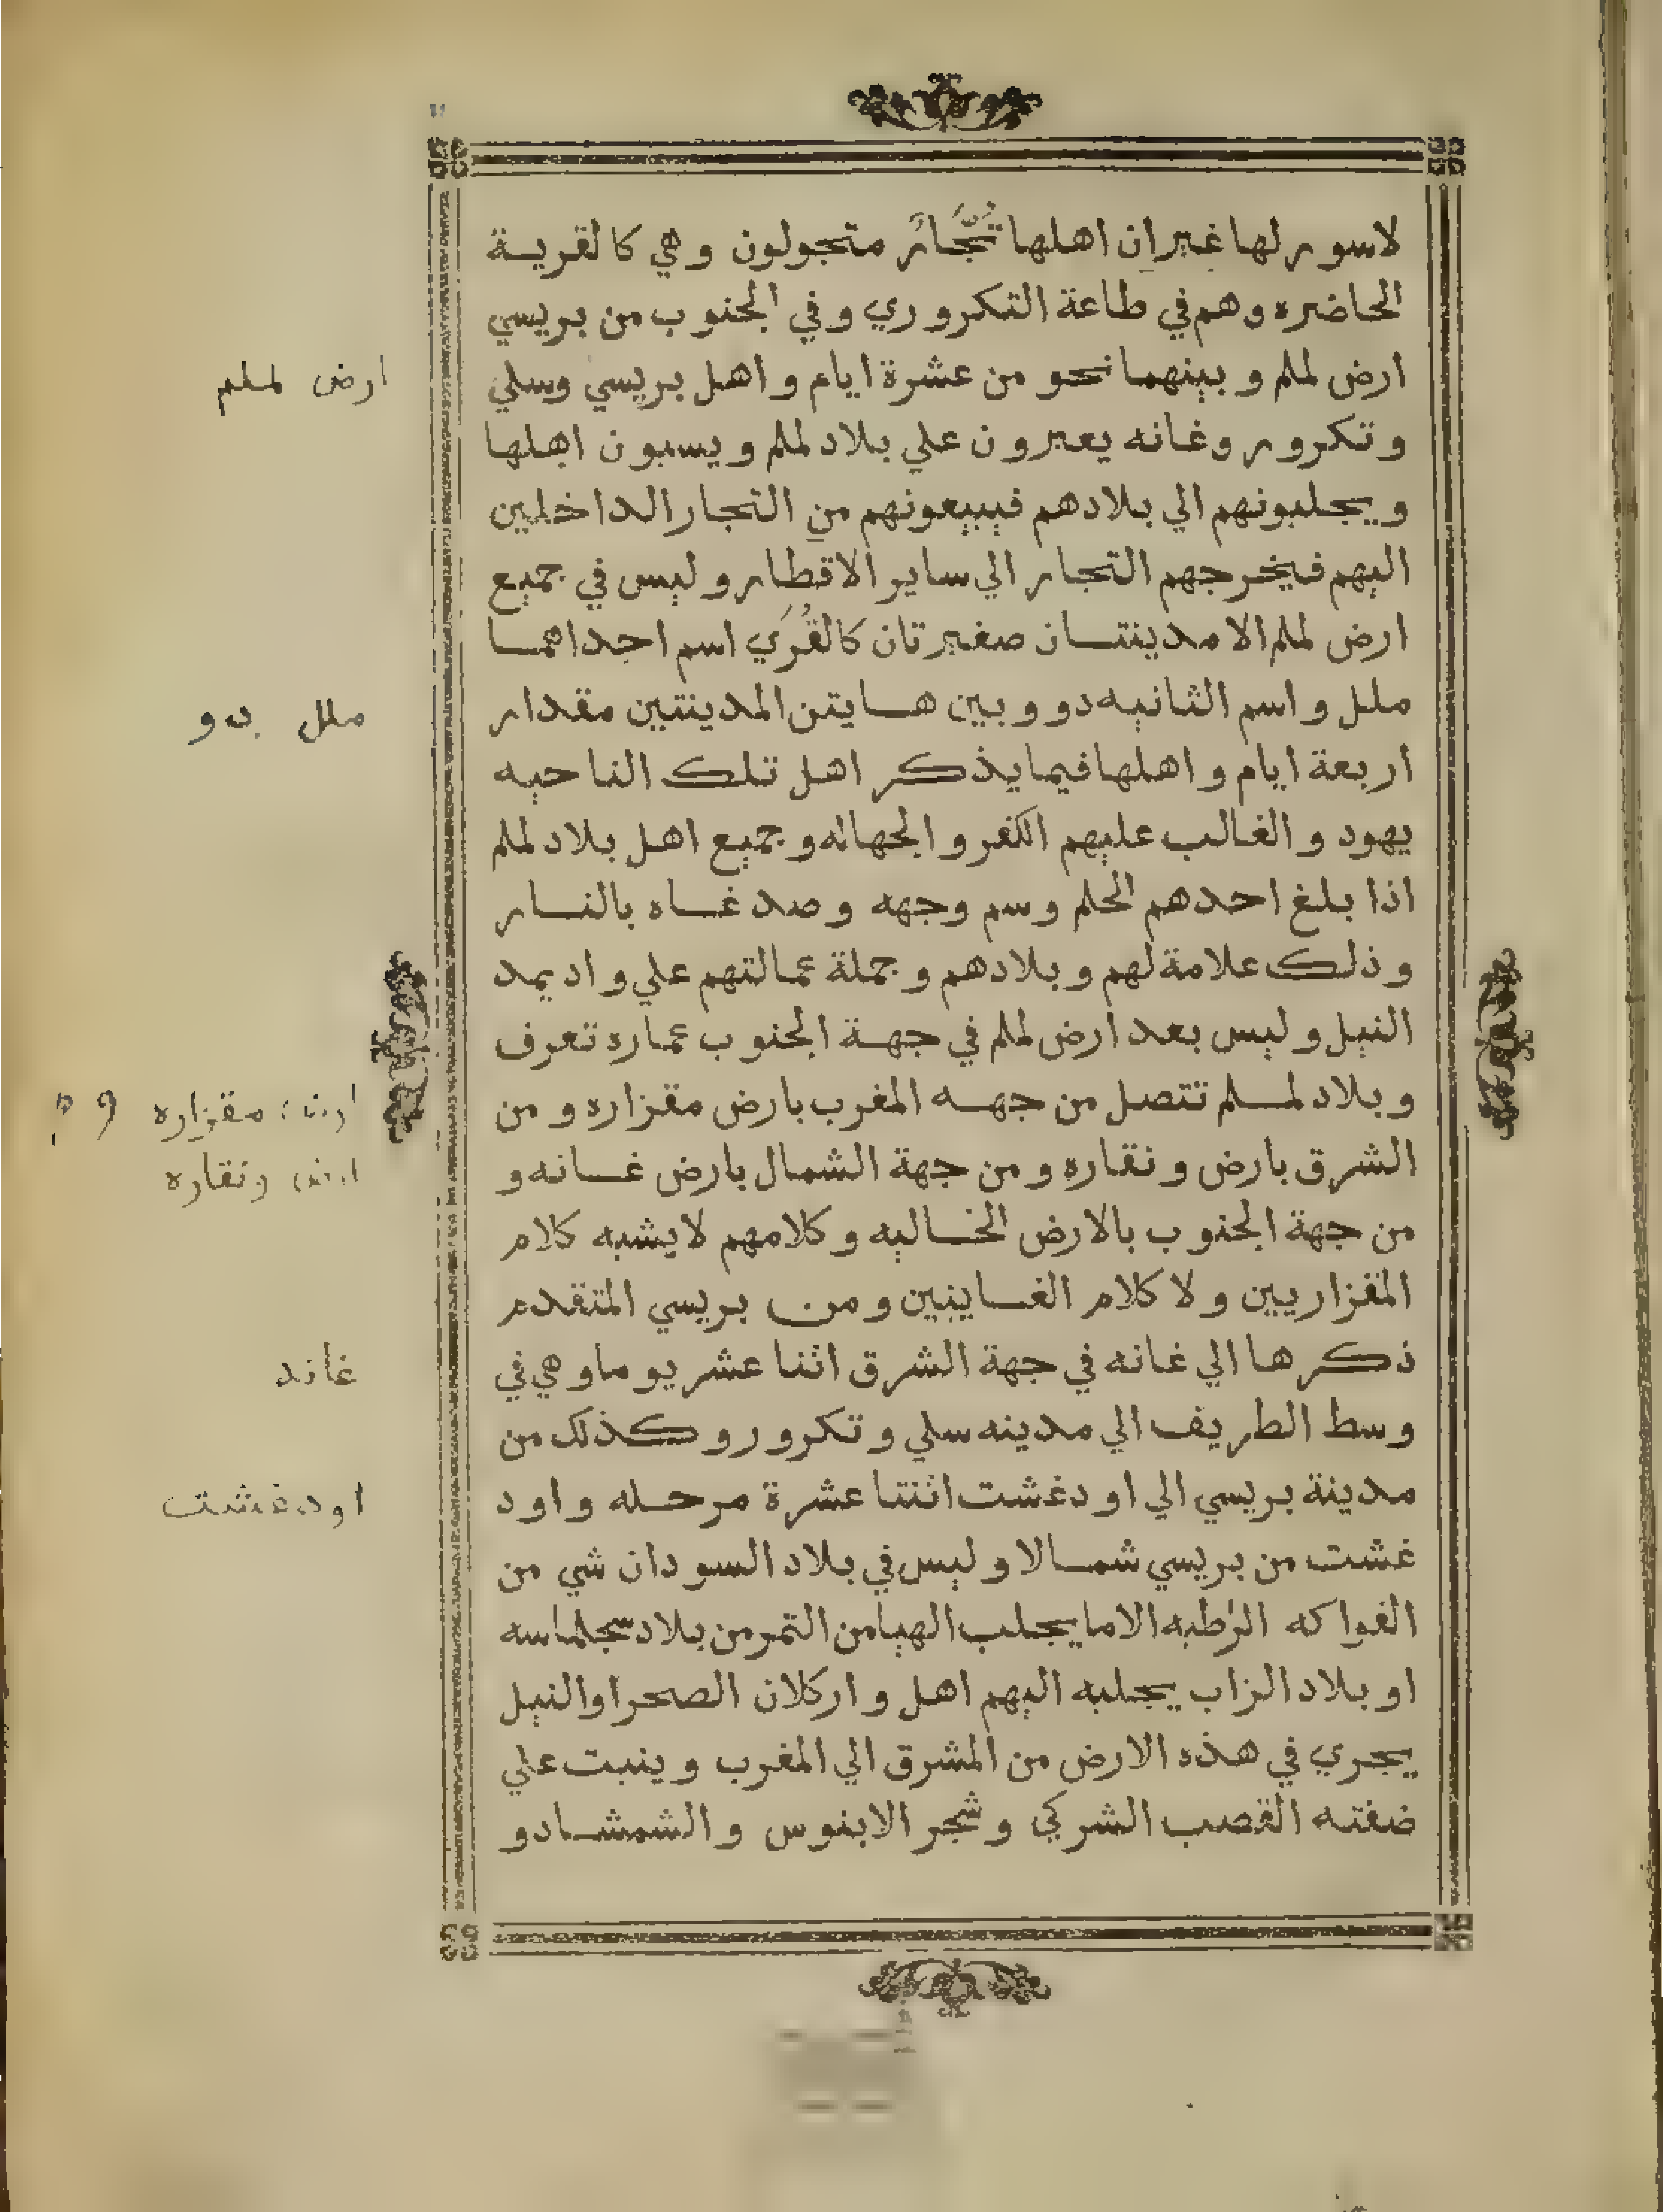 لاسور لها غير ان اهلها تُجَّارٌ متجولون وهي كالقرية
الحاضره وهم في طاعة التكروري وفي الجنوب من بريسي
ارض لملم وبينهما نحو من عشرة ايام واهل بريسي وسلي
وتكرور وغانه يعبرون علي بلاد لملم ويسبون اهلها
ويجلبونهم الي بلادهم فيبيعونهم من التجار الداخلين
اليهم فيخرجهم التجار الي ساير الاقطار وليس في جميع
ارض لملم الا مدينتان صغيرتان كالقُرَي اسم احداهما
ملل واسم الثانيه دو وبين هايتن المدينتين مقدار
اربعة ايام واهلها فيما يذكر اهل تلك الناحيه
يهود والغالب عليهم الكفر والجهاله وجميع اهل بلاد لملم
اذا بلغ احدهم الحلم وسم وجهه وصدغاه بالنار
وذلك علامة لهم وبلادهم وجملة عمالتهم علي واد يمد
النيل وليس بعد ارض لملم في جهة الجنوب عماره تعرف
وبلاد لملم تتصل من جهه المغرب بارض مقزاره ومن
الشرق بارض ونقاره ومن جهة الشمال بارض غانه و
من جهة الجنوب بالارض الخاليه وكلامهم لايشبه كلام
المقزاريين ولا كلام الغاينيين ومن بريسي المتقدم
ذكرها الي غانه في جهة الشرق اثنا عشر يوما وهي في
وسط الطريف الي مدينه سلي وتكرور وكذلك من
مدينة بريسي الي اودغشت اثنتا عشرة مرحله واود
غشت من بريسي شمالا وليس في بلاد السودان شي من
الفواكه الرطبه الا ما يجلب الهيا من التمر من بلاد سجلماسه
او بلاد الزاب يجلبه اليهم اهل واركلان الصحرا والنيل
يجري في هذه الارض من المشرق الي المغرب وينبت علي
ضفته القصب الشركي وشجر الابنوس والشمشاد و
ارض لملم
ملل دو
ارض مقزاره
ارض ونقاره
غانه
اودغشت